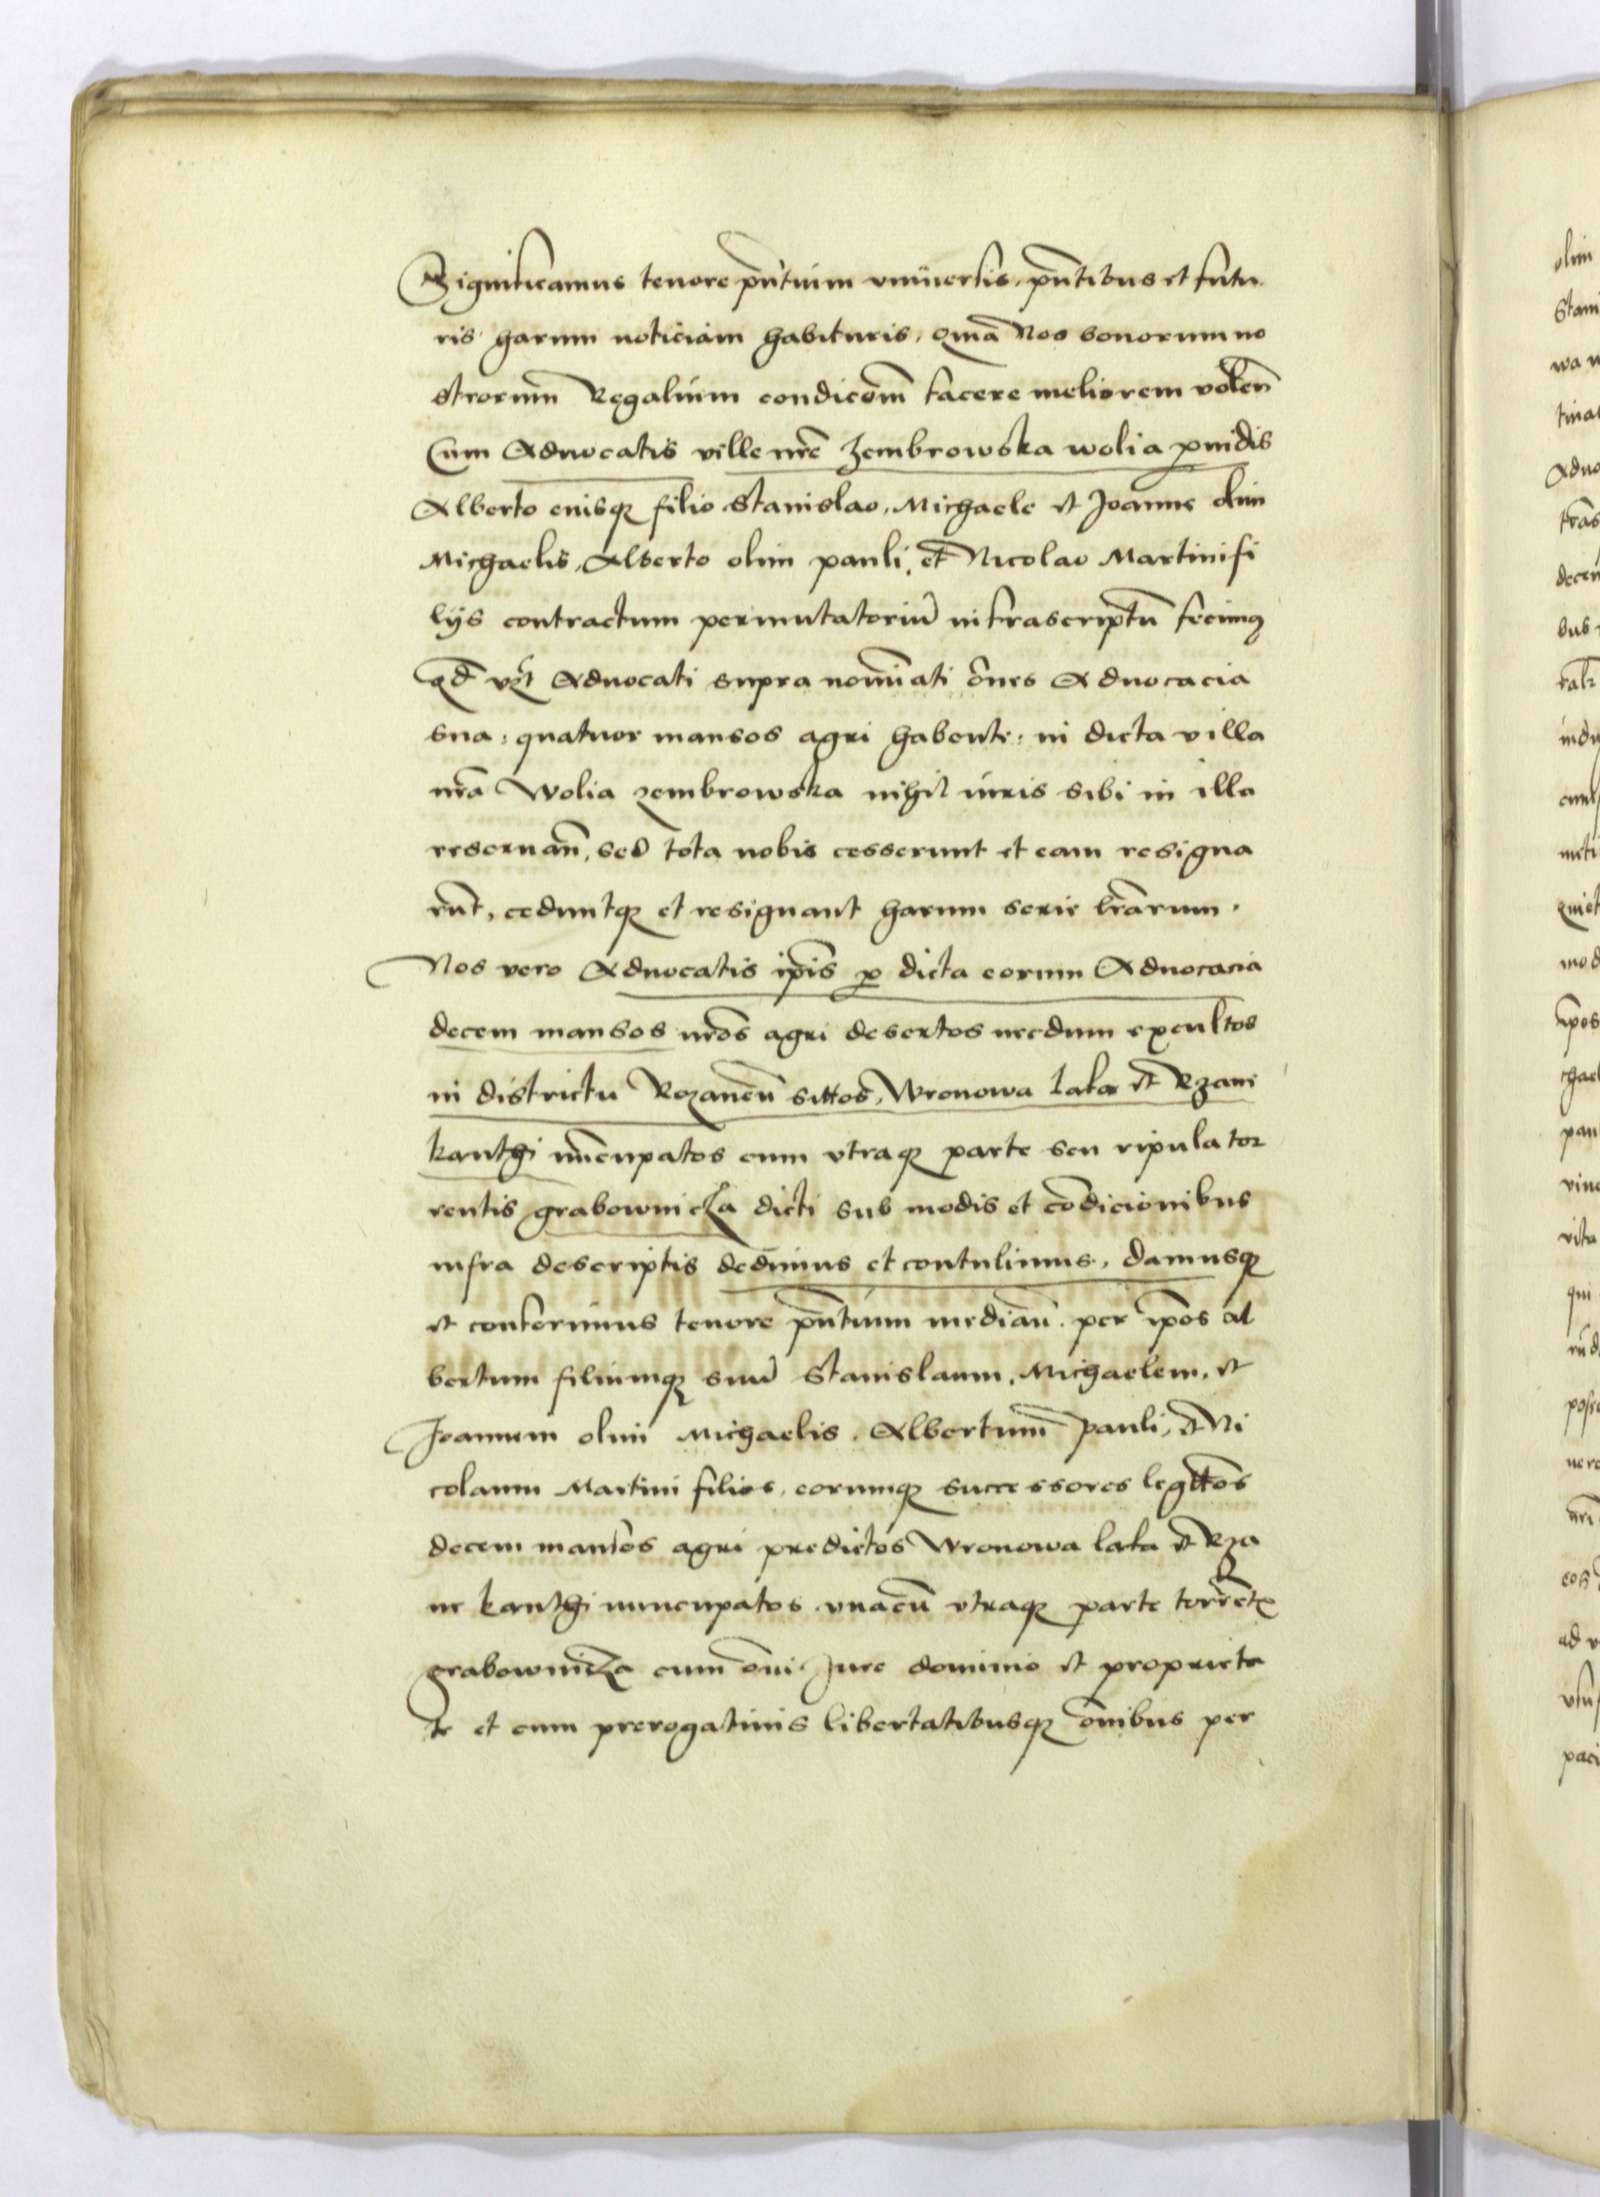 Significamus tenore pñtium vniuersis, pñtibus et futu
ris harum noticiam habituris, qma Nos bonorum no
strorum Regalium condicõm facere meliorem voleñ
Cum Aduocatis ville nr̃e Zembrowska wolia ꝓuidis
Alberto eiusqꝫ filio Stanislao, Michaele et Joanne olim
Michaelis, Alberto olim pauli, et Nicolao Martini fi
lijs contractum permutatoriũ infrascriptũ fecimꝰ
qd̃ vꝫt Aduocati supra nominati õnes Aduocacia
sua: quatuor mansos agri habente: in dicta villa
nr̃a Wolia zembrowska nihil iuris sibi in illa
reseruañ, sed tota nobis cesserunt et eam resigna
rũt, ceduntqꝫ et resignant harum serie lr̃arum.
Nos vero Aduocatis ip̃is ꝓ dicta eorum Aduocacia
decem mansos nr̃os agri desertos necdum excultos
in districtu Rozaneñ sittos, Wronowa laka et Rzani
kanthi nũcupatos cum vtraqꝫ parte seu ripula tor
rentis grabownicza dicti sub modis et cõdicionibus
infra descriptis dedimus et contulimus, damusqꝫ
et conferimus tenore pñtium mediañ. per ip̃os al
bertum filiumqꝫ suũ Stanislaum, Michaelem, et
Joannem olim Michaelis, Albertum pauli, et Ni
colaum Martini filios, eorumqꝫ successores legttos
decem mansos agri predictos Wronowa laka et Rza
ne kanthi nuncupatos vnacũ vtraqꝫ parte torrẽtꝭ
grabownicza cum õni Jure dominio et proprieta
te et cum prerogatiuis libertatibusqꝫ õnibus per
olim
Stani
wa
Aduo
bus
pos
chael
pau
vita
qui
ad
paci